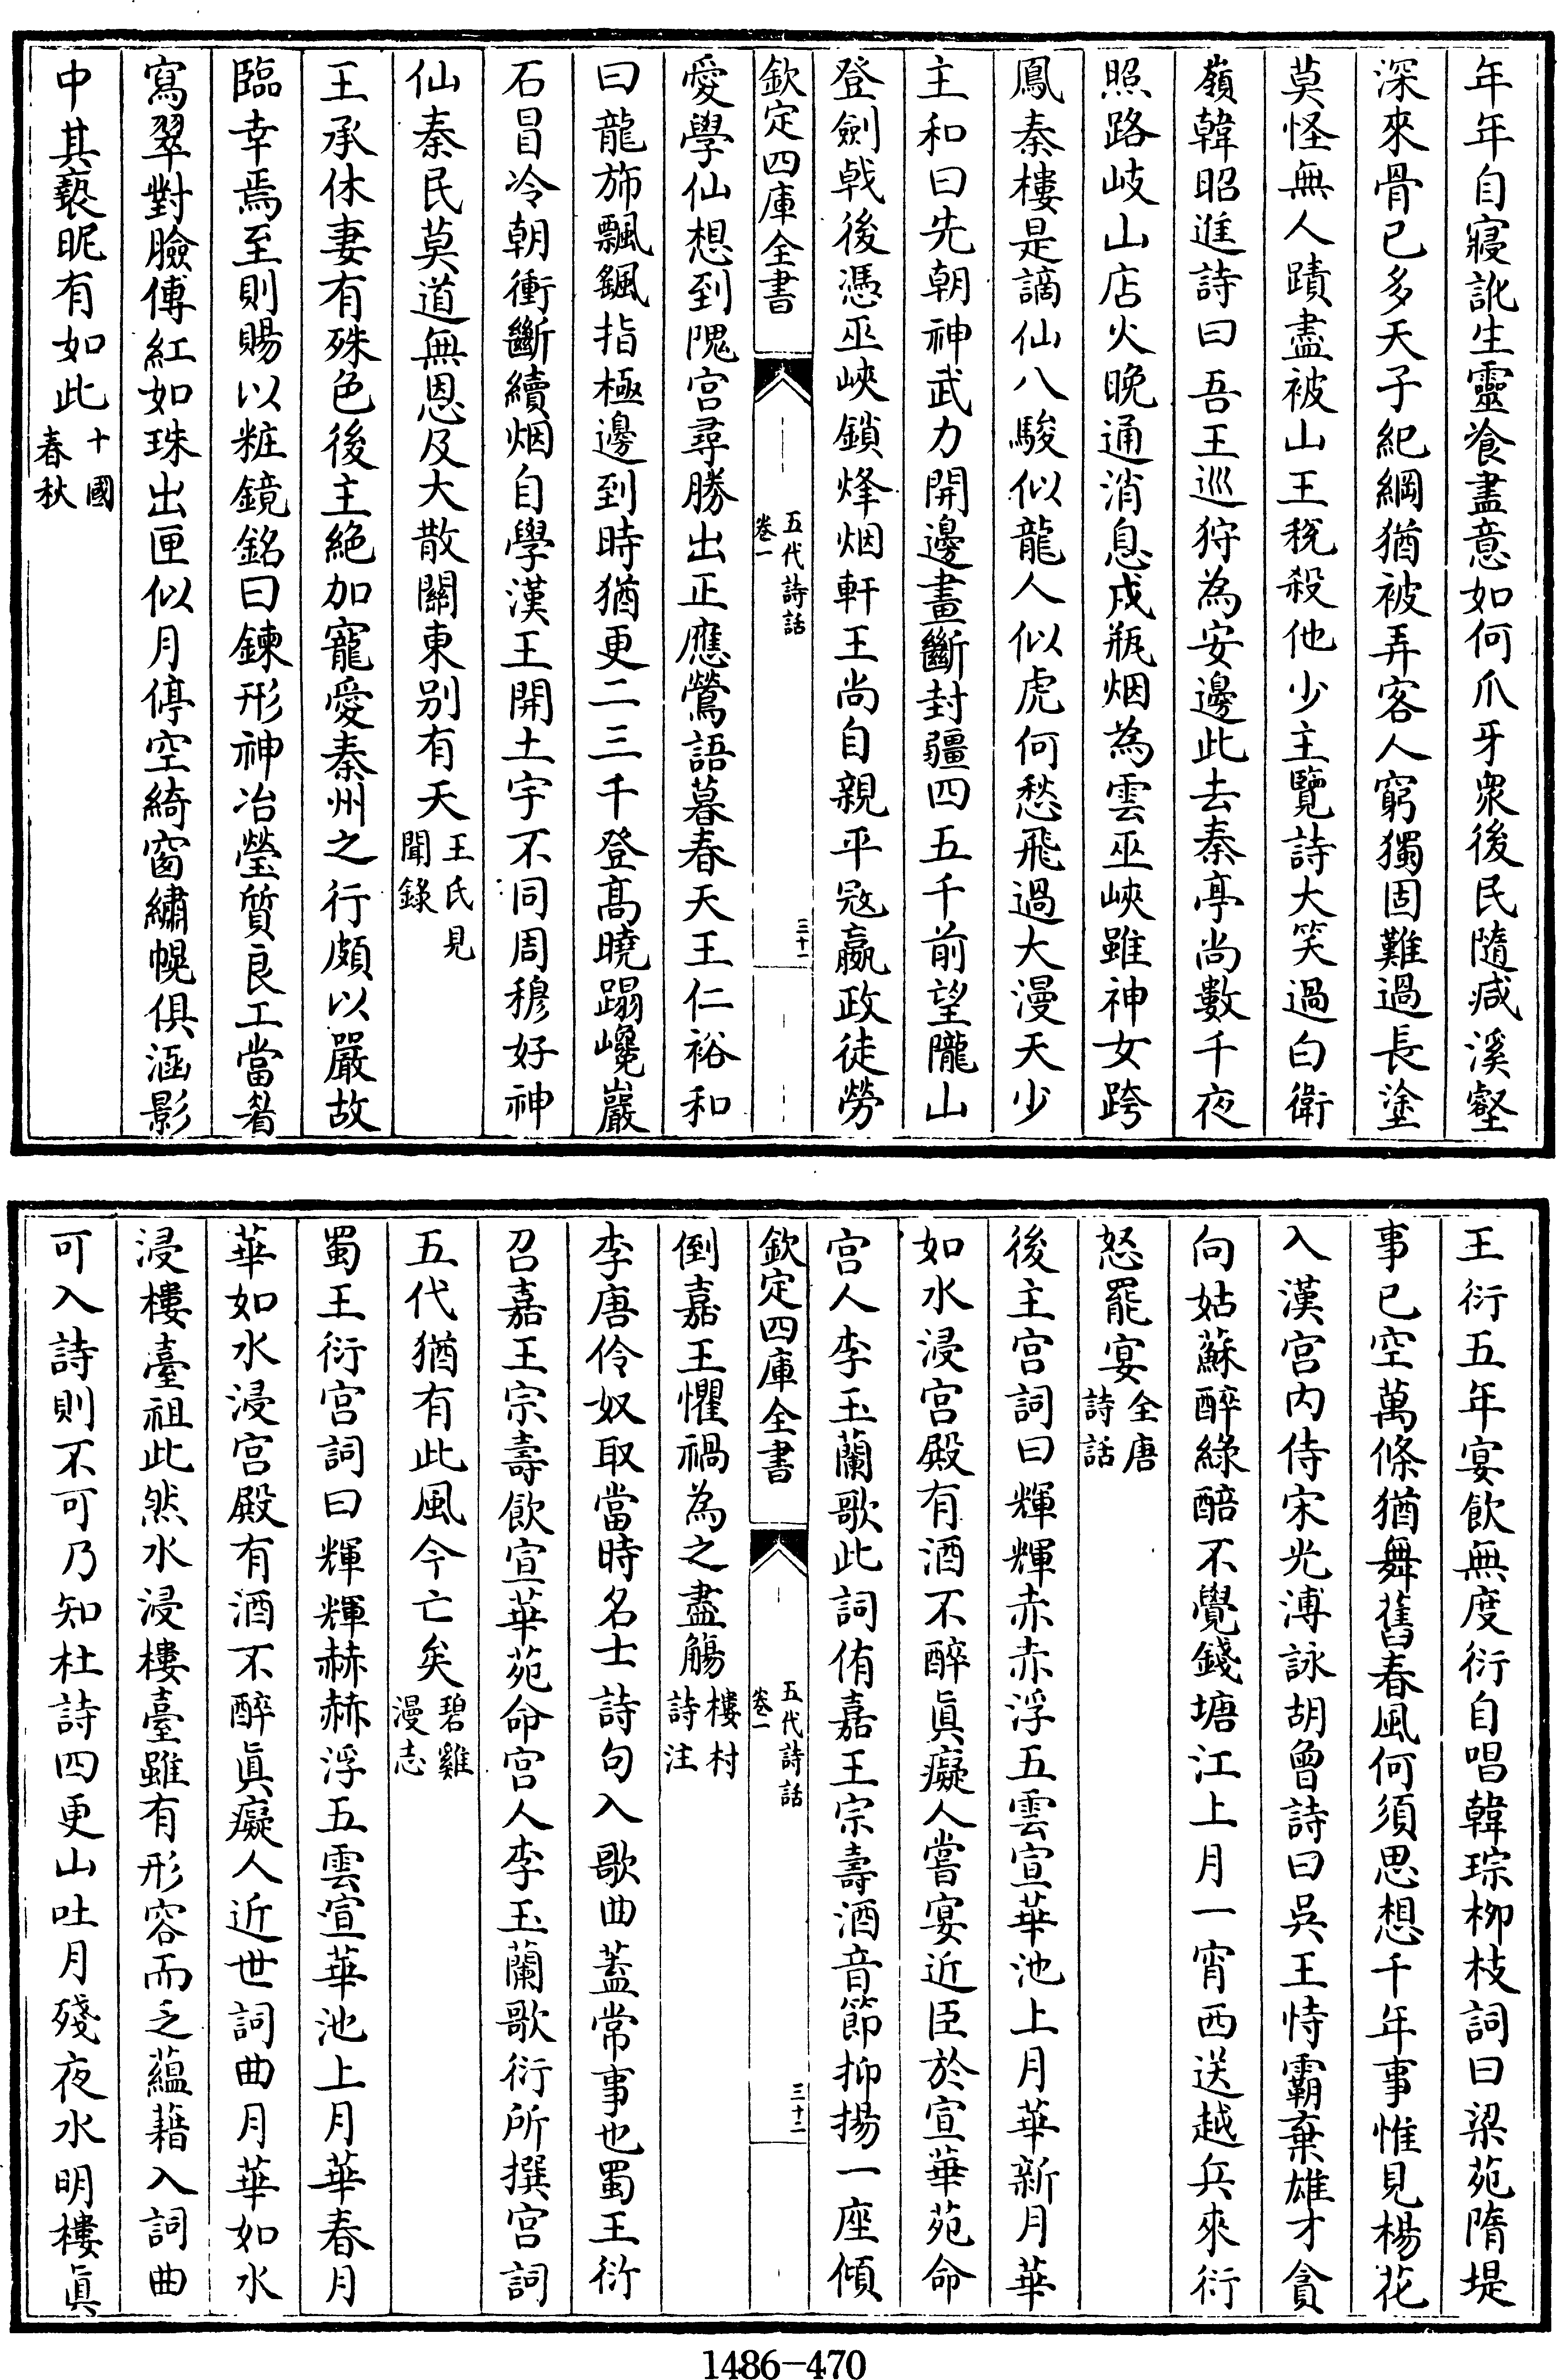 年年自寢訛生靈飡盡意如何爪牙衆後民隨減溪壑
深來骨已多天子紀綱猶被弄客人窮獨固難過長塗
莫怪無人蹟盡被山王稅殺他少主覽詩大笑過白衛
嶺韓昭進詩曰吾王巡狩為安邊此去秦亭尚數千夜
照路岐山店火晚通消息戍瓶烟為雲巫峽雖神女跨
鳳秦樓是謫仙八駿似龍人似虎何愁飛過大漫天少
主和曰先朝神武力開邊畫斷封疆四五千前望隴山
登劍戟後憑巫峽鎖烽烟軒王尚自親平寇嬴政徒勞
欽定四庫全書
五代詩話
卷一
三十一
愛學仙想到隗宫尋勝出正應鶯語暮春天王仁裕和
曰龍斾飄颻指極邊到時猶更二三千登高曉蹋巉巖
石冒冷朝衝斷續烟自學漢王開土宇不同周穆好神
仙秦民莫道無恩及大散關東别有天王氏見
聞錄
王承休妻有殊色後主絶加寵愛秦州之行頗以嚴故
臨幸焉至則賜以粧鏡銘曰鍊形神冶瑩質良工當眉
寫翠對臉傅紅如珠出匣似月停空綺窗繡幌俱涵影
中其褻昵有如此十國
春秋
王衍五年宴飲無度衍自唱韓琮栁枝詞曰梁苑隋堤
事已空萬條猶舞舊春風何須思想千年事惟見楊花
入漢宫内侍宋光溥詠胡曾詩曰吳王恃霸棄雄才貪
向姑蘇醉綠醅不覺錢塘江上月一宵西送越兵來衍
怒罷宴全唐
詩話
後主宫詞曰輝輝赤赤浮五雲宣華池上月華新月華
如水浸宫殿有酒不醉眞癡人嘗宴近臣於宣華苑命
宫人李玉蘭歌此詞侑嘉王宗壽酒音節抑揚一座傾
欽定四庫全書
五代詩話
卷一
三十二
倒嘉王懼禍為之盡觴樓村
詩注
李唐伶奴取當時名士詩句入歌曲蓋常事也蜀王衍
召嘉王宗壽飲宣華苑命宫人李玉蘭歌衍所撰宫詞
五代猶有此風今亡矣碧雞
漫志
蜀王衍宫詞曰輝輝赫赫浮五雲宣華池上月華春月
華如水浸宫殿有酒不醉眞癡人近世詞曲月華如水
浸樓臺祖此然水浸樓臺雖有形容而乏蘊藉入詞曲
可入詩則不可乃知杜詩四更山吐月殘夜水明樓眞
1486-470